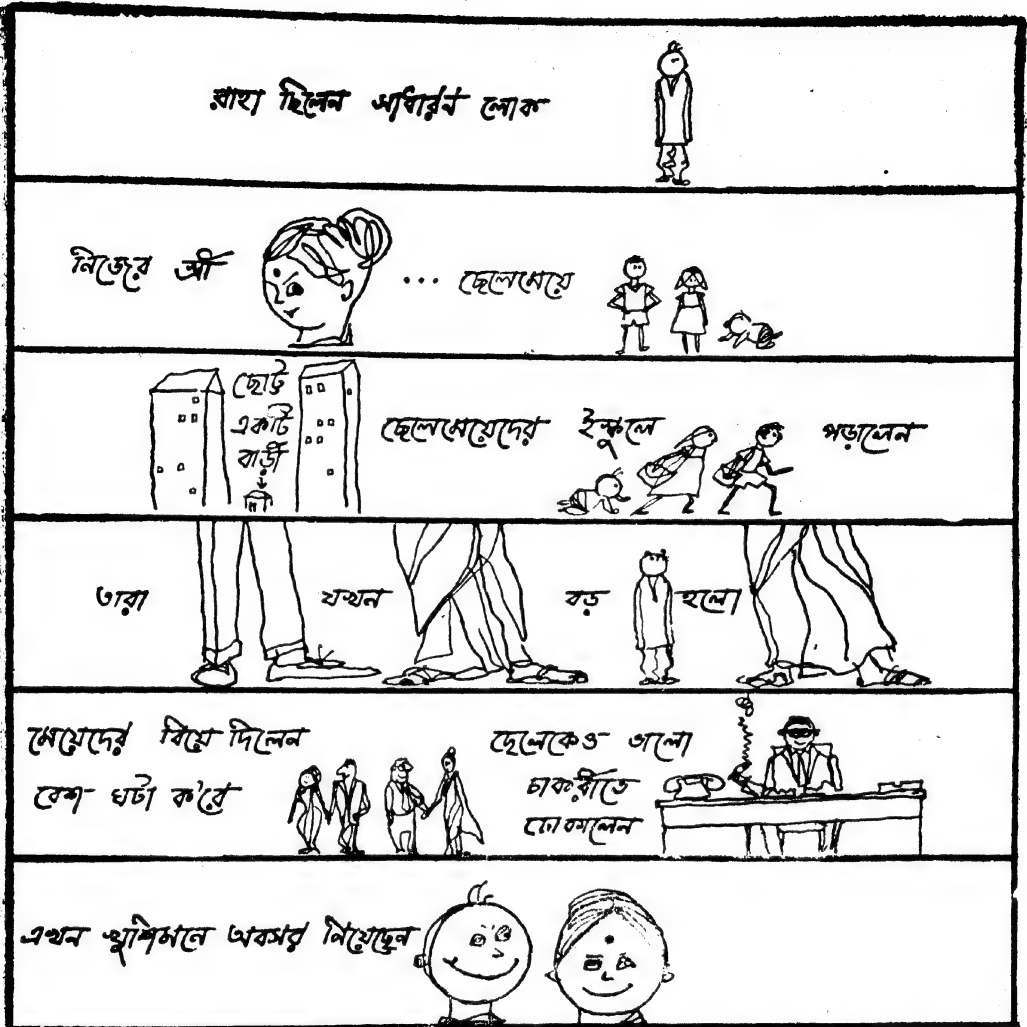 রাহা ছিলেন সাধারন লোক
নিজের স্ত্রী ... ছেলেমেয়ে
ছোট্ট
একটি
বাড়ী
ছেলেমেয়েদের ইস্কুলে পড়ালেন
তারা যখন বড় হলো
মেয়েদের বিয়ে দিলেন
বেশ ঘটা ক'রে
ছেলেকেও ভালো
চাকরীতে
ঢোকালেন
এখন খুশিমনে অবসর নিয়েছেন